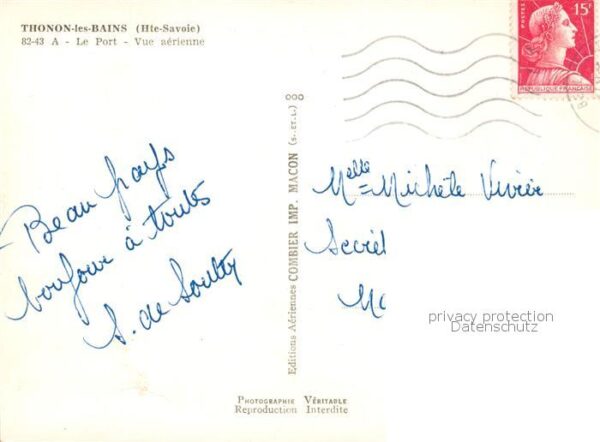 THONON-les-BAINS (Hte-Savoie)
82-43 A - Le Port - Vue aérienne
POSTES 15F
REPUBLIQUE FRANÇAISE
Beau pays
bonjour à toutes
S. de Soultz
Editions Aériennes COMBIER IMP. MACON (S.-ET-L.) 000
Melle Michèle Vivier
Secrét
Mo
privacy protection
Datenschutz
PHOTOGRAPHIE VÉRITABLE
Reproduction Interdite